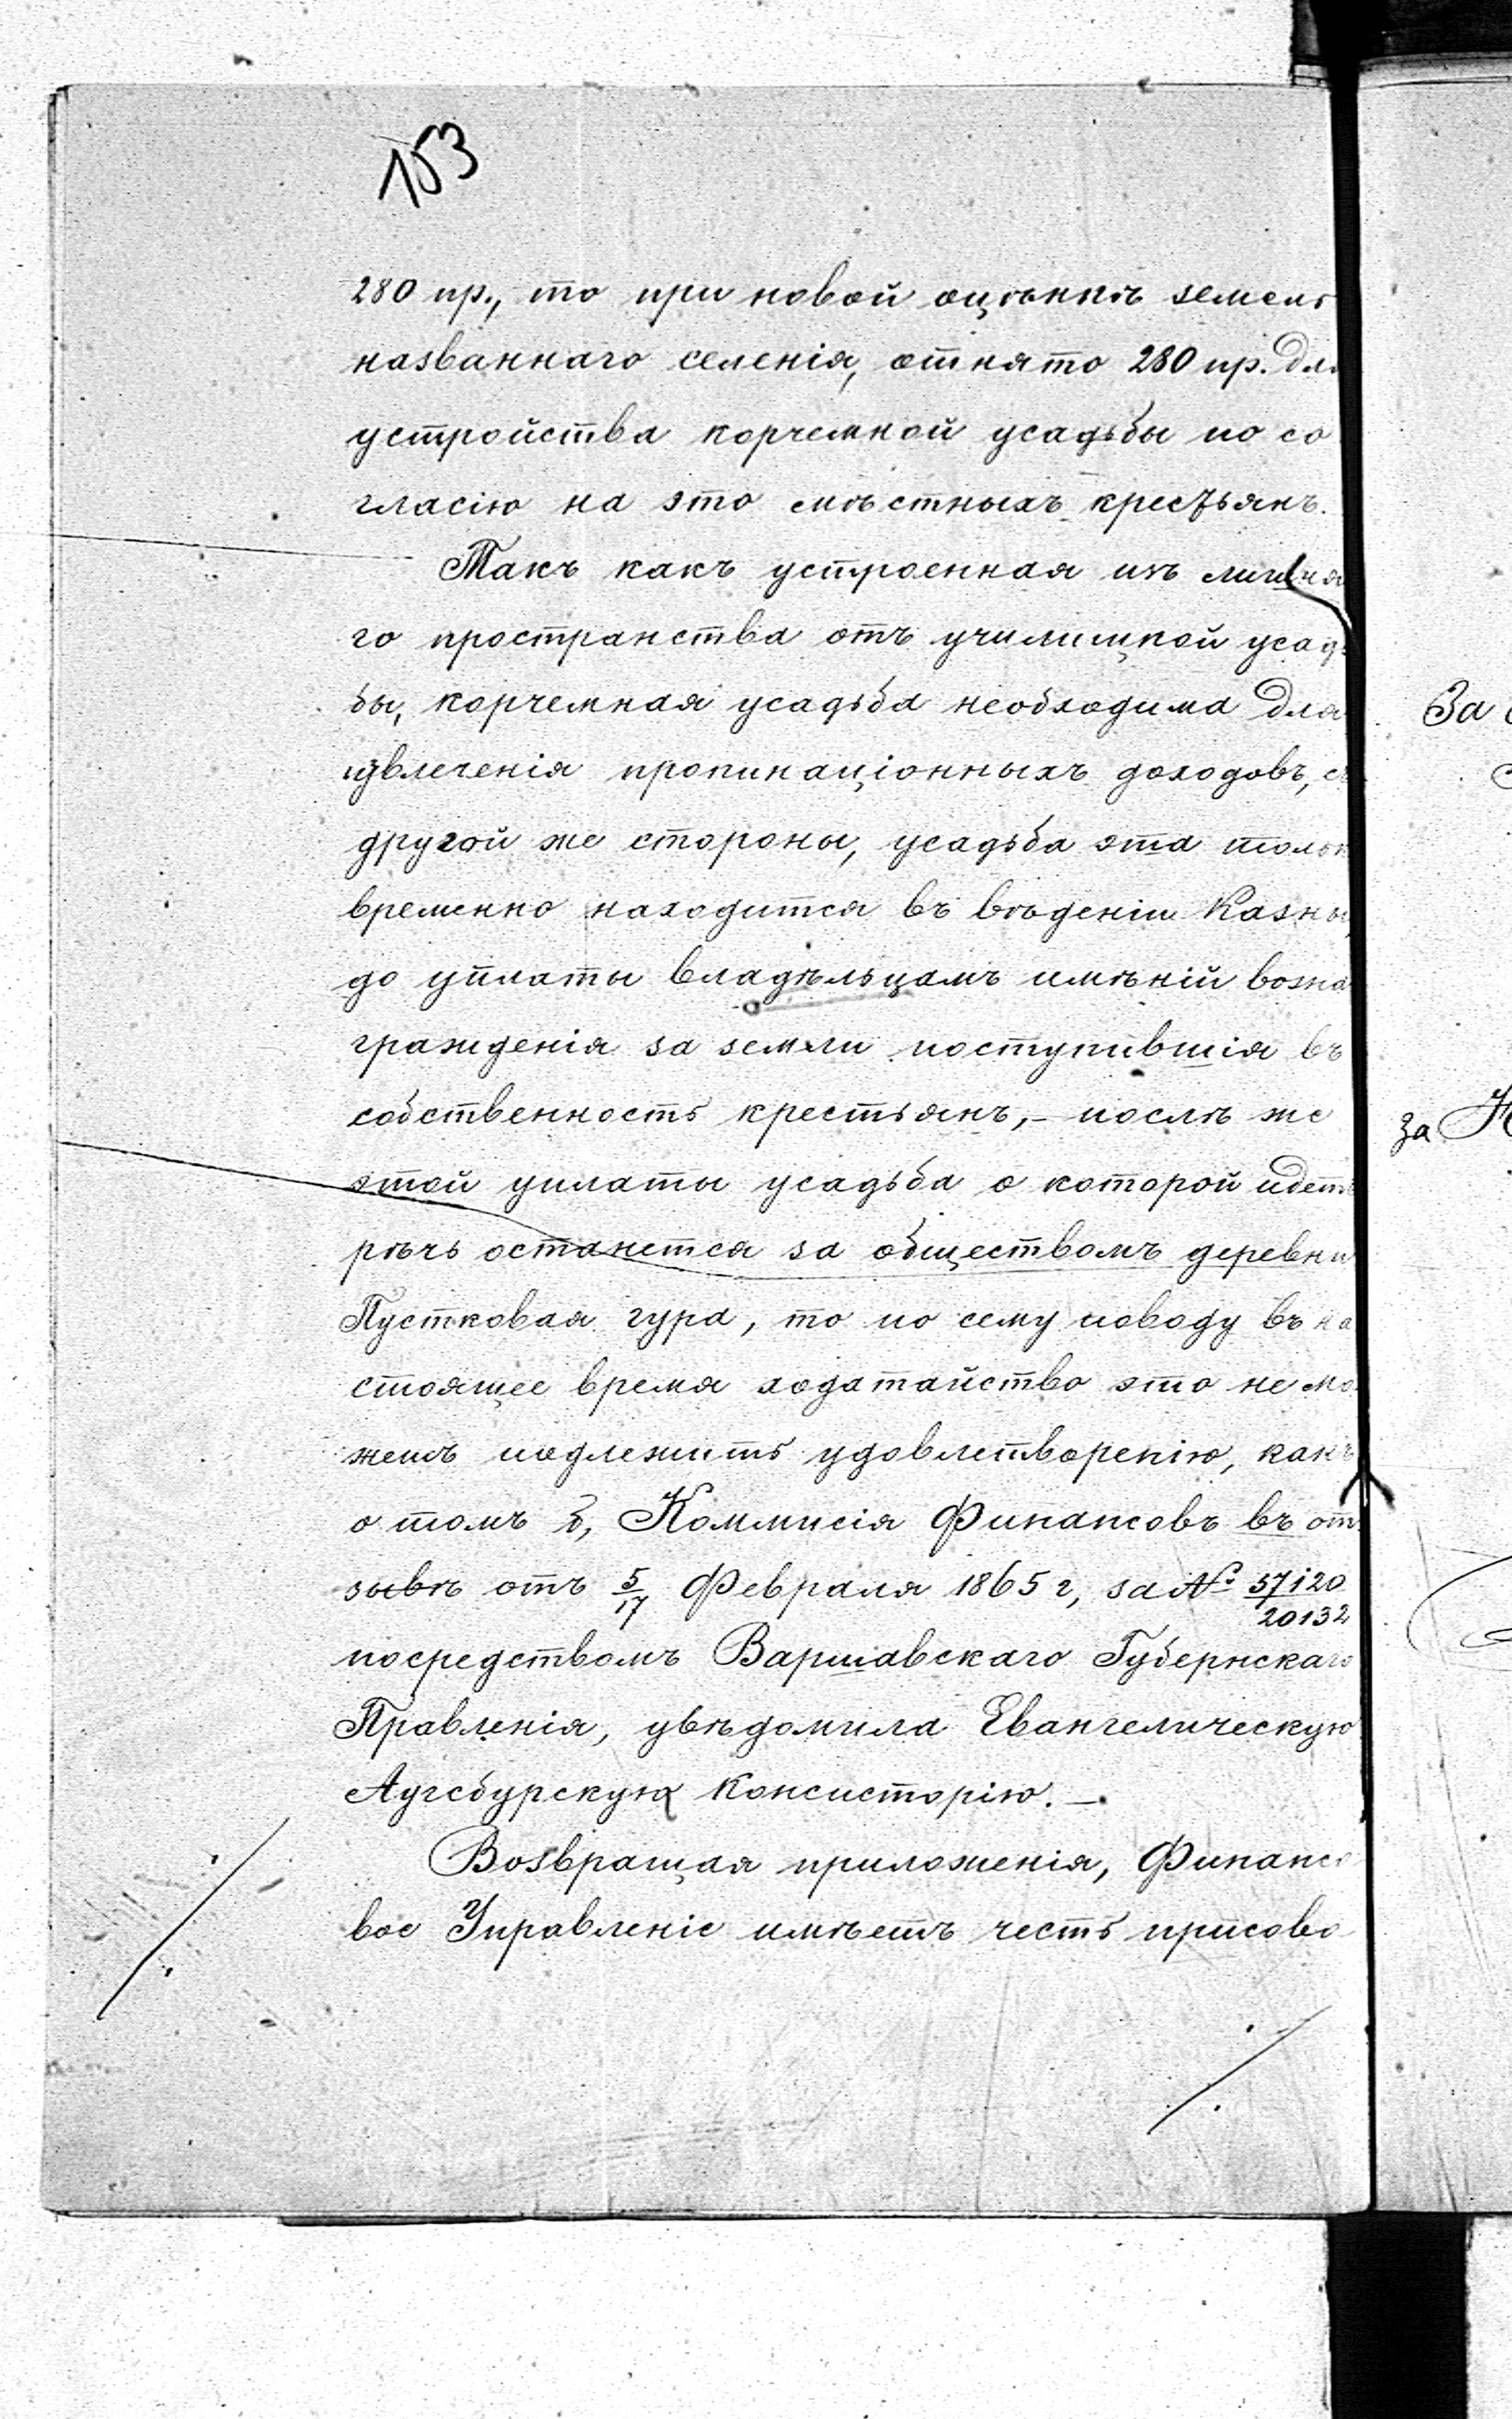 153
280 пр., то при новой оцѣнкѣ земель
названнаго селенія, отнято 280 пр. для
устройства корчемной усадьбы по со
гласію на это мѣстныхъ крестьянъ.
Такъ какъ устроенная изъ лишня
го пространства отъ училищной усадь
бы, корчемная усадьба необходима для
извлеченія пропинаціонныхъ доходовъ, съ
другой же стороны, усадьба эта тольк
временно находится въ вѣденіи Казны,
до уплаты владѣльцамъ имѣній возна
гражденія за земли поступившія въ
собственность крестьянъ,– послѣ же
этой уплаты усадьба о которой идетъ
рѣчь останется за обществомъ деревни
Пустковая гура, то по сему поводу въ на
стоящее время ходатайство это не мо
жетъ подлежить удовлетворенію, какъ
о томъ б, Коммисія Финансовъ въ от
зывѣ отъ 5/17 Февраля 1865 г, за № 57120/20132
посредствомъ Варшавскаго Губернскаго
Правленія, увѣдомила Евангелическую
Аугсбургскую Консисторію. –
Возвращая приложенія, Финансо
вое Управленіе имѣетъ честь присово
За
за